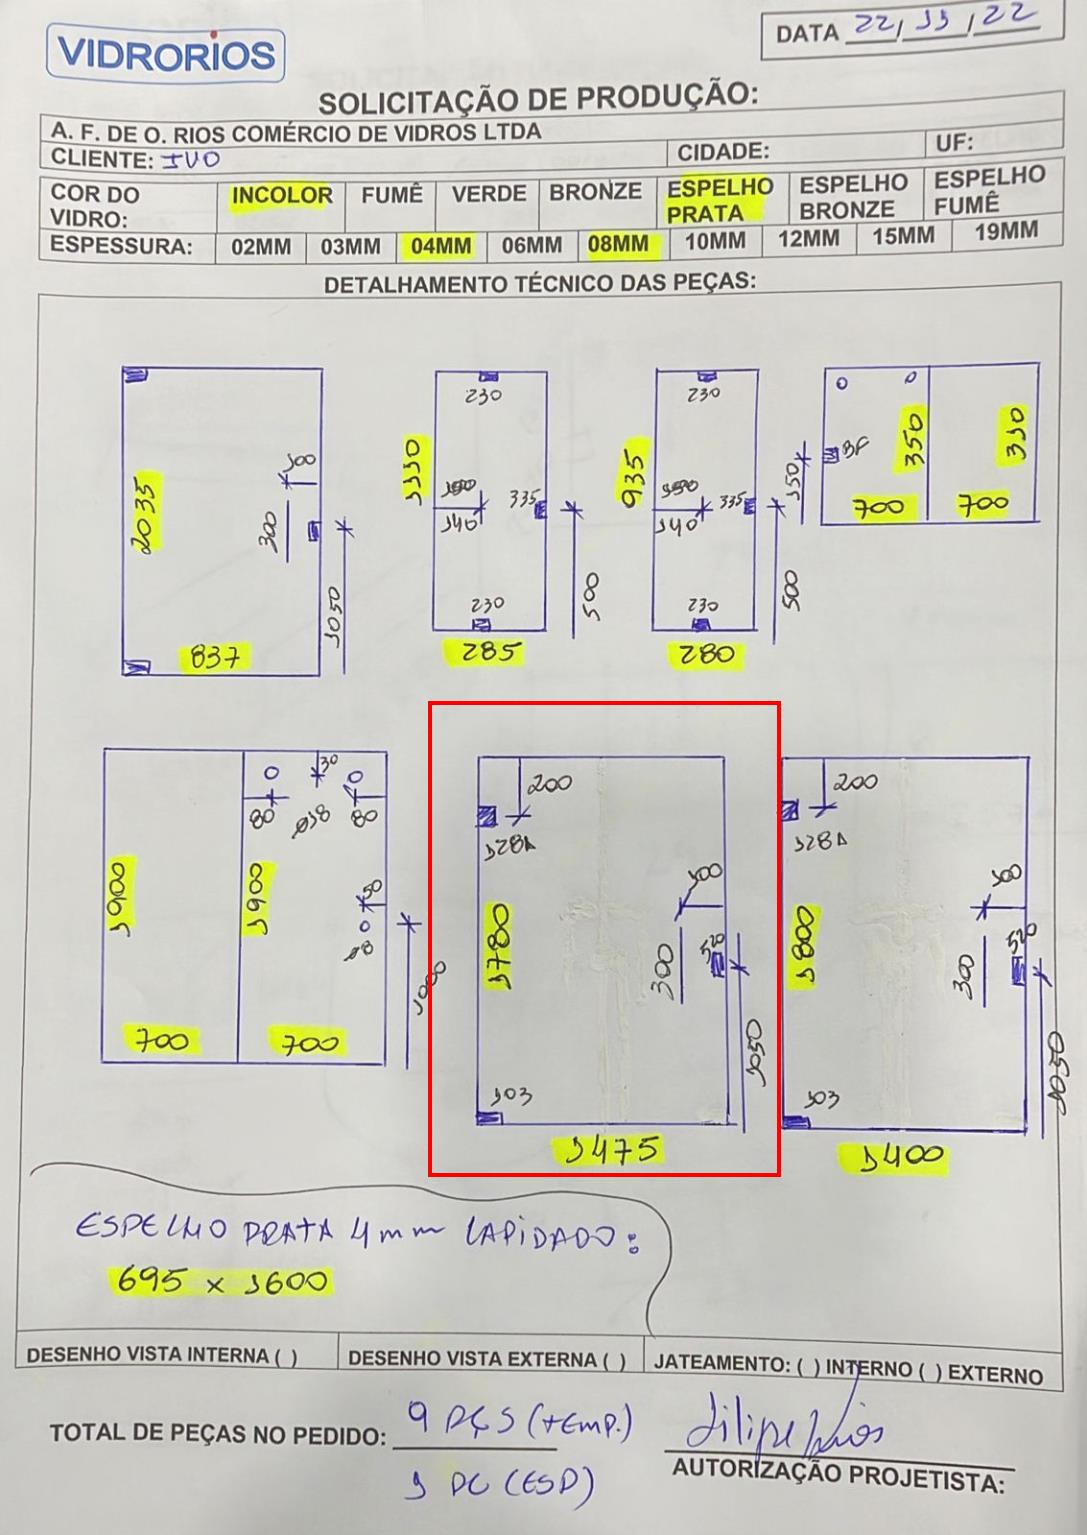 VIDRORIOS
DATA 22/11/22
SOLICITAÇÃO DE PRODUÇÃO:
A. F. DE O. RIOS COMÉRCIO DE VIDROS LTDA
CLIENTE: IVO CIDADE: UF:
COR DO VIDRO: INCOLOR FUMÊ VERDE BRONZE ESPELHO PRATA ESPELHO BRONZE ESPELHO FUMÊ
ESPESSURA: 02MM 03MM 04MM 06MM 08MM 10MM 12MM 15MM 19MM
DETALHAMENTO TÉCNICO DAS PEÇAS:
2035
100
300
1050
837
230
1110
140
335
500
230
285
230
935
140
335
500
230
280
350
310
BF
150
700
700
1900
1900
30
80
80
50
1000
700
700
200
128A
1780
100
300
520
1050
103
1475
200
128A
1800
100
300
520
1050
103
1400
ESPELHO PRATA 4mm LAPIDADO:
695 x 1600
DESENHO VISTA INTERNA ( ) DESENHO VISTA EXTERNA ( ) JATEAMENTO: ( ) INTERNO ( ) EXTERNO
TOTAL DE PEÇAS NO PEDIDO: 9 PÇS (TEMP.)
1 PC (ESP)
Filipe Rios
AUTORIZAÇÃO PROJETISTA: